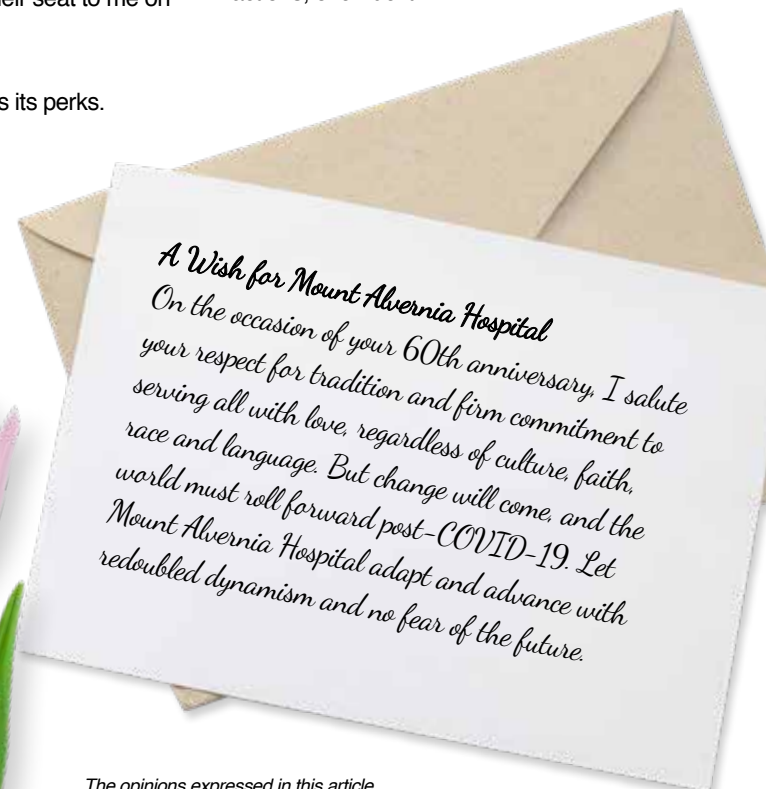 seat to me on
its perks.
A Wish for Mount Alvernia Hospital
On the occasion of your 60th anniversary, I salute
your respect for tradition and firm commitment to
serving all with love, regardless of culture, faith,
race and language. But change will come, and the
world must roll forward post-COVID-19. Let
Mount Alvernia Hospital adapt and advance with
redoubled dynamism and no fear of the future.
The opinions expressed in this article